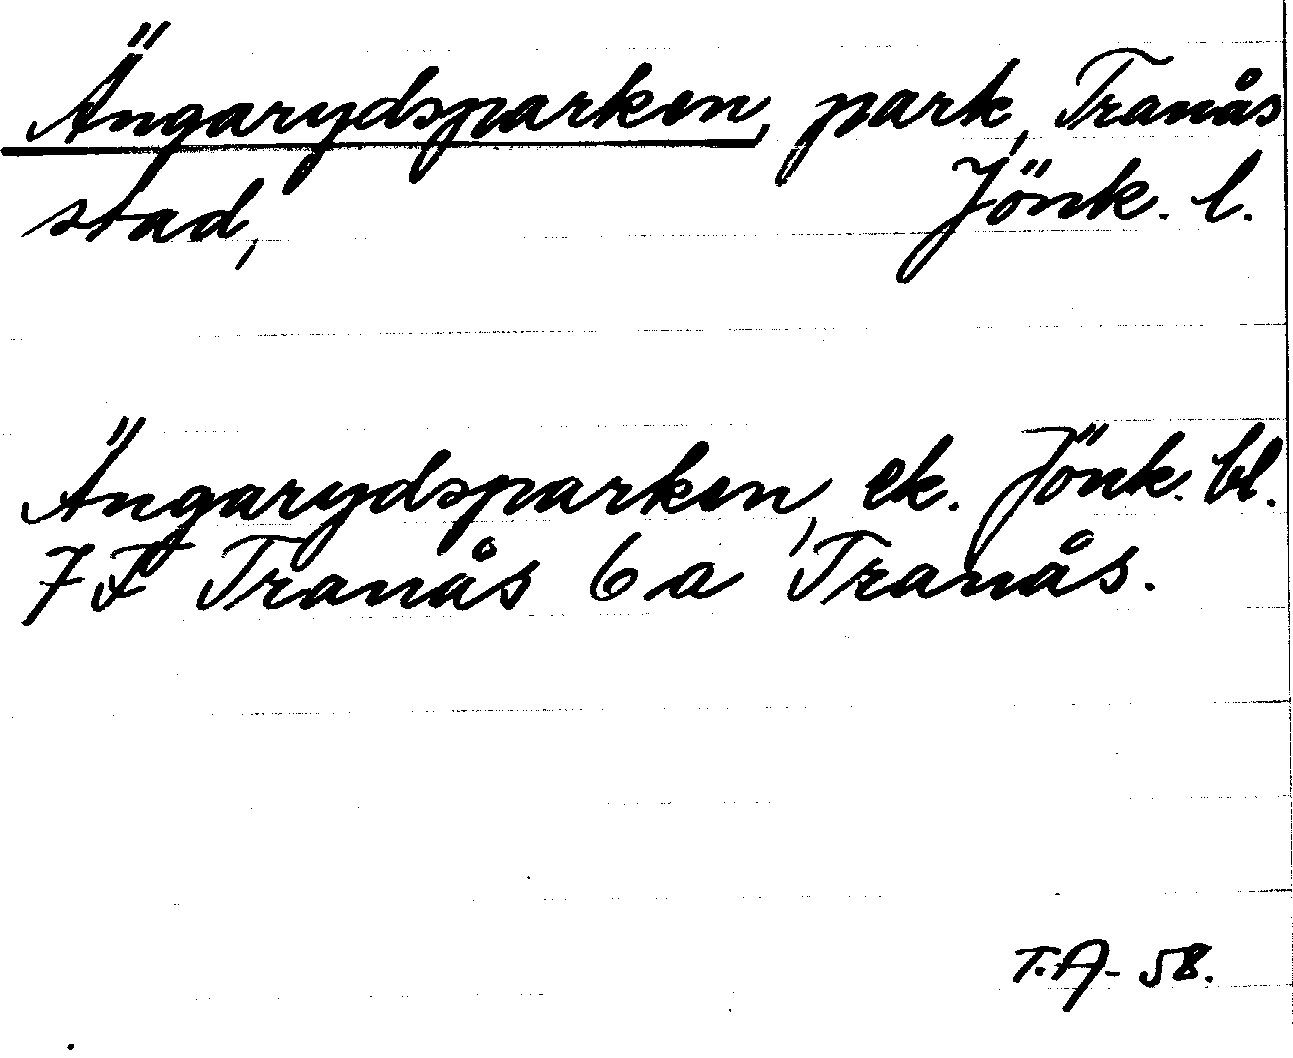 Ängarydsparken, park, Tranås
stad, Jönk. l.
Ängarydsparken, ek. Jönk. bl.
7F Tranås 6a Tranås.
T.A-58.